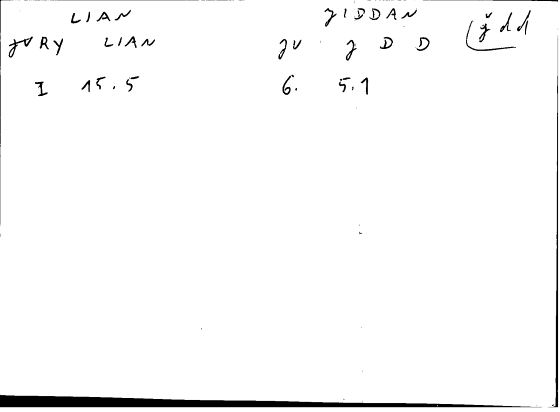 LIAN JIDDAN
JURY LIAN JU J D D
I 15.5 6. 5.1
ǧdd